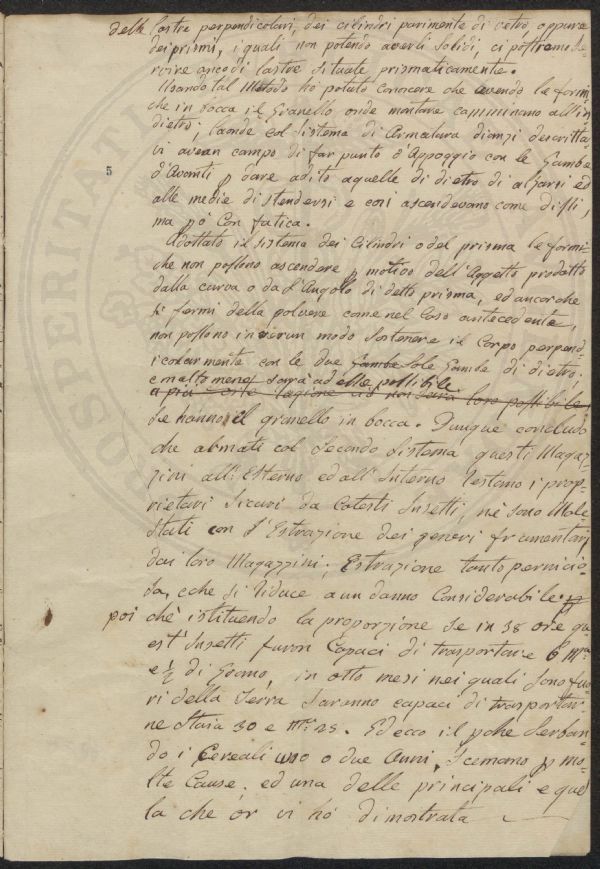 delle lastre perpendicolari, dei cilindri parimente di vetro, oppure
dei prismi, i quali non potendo averli solidi, ci possiamo se-
rvire anco di lastre situate prismaticamente.
Usando tal Metodo ho potuto conoscere che avendo le formi-
che in bocca il Granello, onde montare camminano all'in
dietro; laonde col sistema di Armatura dianzi descritta
vi avean campo di far punto d'Appoggio con le Gambe
5
d'Avanti p dare adito a quelle di dietro di alzarsi ed
alle medie di stendersi e così ascendevano come dissi,
ma pò con fatica.
Adottato il sistema dei Cilindri o del prisma le formi-
che non possono ascendere p motivo dell'Aggetto prodotto
dalla curva o da l'Angolo di detto prisma, ed ancorche
si formi della polvere come nel Caso antecedente,
non possono in verun modo sostenere il Corpo perpend-
icolarmente con le due Gambe sole Gambe di dietro;
e molto meno sarà ad elle possibile
a più forte ragione ciò non sarà loro possibile
se hanno il granello in bocca. Dunque concludo
che armati col secondo sistema questi Magaz-
zini all'Esterno ed all'Interno restano i prop-
rietari sicuri da Cotesti Insetti, nè sono Mole
stati con l'Estrazione dei generi frumentari
dai loro Magazzini; Estrazione tanto pernicio-
sa, e che si riduce a un danno Considerabile;
poi chè istituendo la proporzione se in 38 ore que
est'Insetti furon Capaci di trasportare 6
e ½ di Grano, in otto mesi nei quali sono fuo-
ri della Terra saranno capaci di trasportar-
ne Staia 30 e 25. Ed ecco il pchè Serban-
do i Cereali uno o due Anni, Scemano p mo-
lte Cause, ed una delle principali e quel
la che or vi hò dimostrata